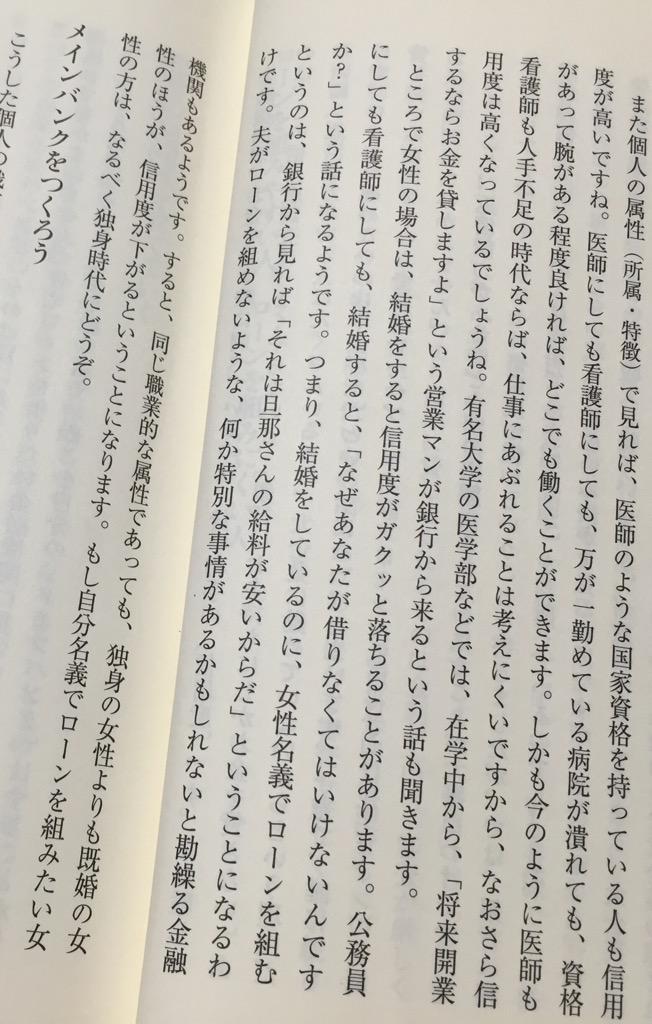 また個人の属性（所属・特徴）で見れば、医師のような国家資格を持っている人も信用
度が高いですね。医師にしても看護師にしても、万が一勤めている病院が潰れても、資格
があって腕がある程度良ければ、どこでも働くことができます。しかも今のように医師も
看護師も人手不足の時代ならば、仕事にあぶれることは考えにくいですから、なおさら信
用度は高くなっているでしょうね。有名大学の医学部などでは、在学中から、「将来開業
するならお金を貸しますよ」という営業マンが銀行から来るという話も聞きます。
ところで女性の場合は、結婚をすると信用度がガクッと落ちることがあります。公務員
にしても看護師にしても、結婚すると、「なぜあなたが借りなくてはいけないんです
か？」という話になるようです。つまり、結婚をしているのに、女性名義でローンを組む
というのは、銀行から見れば「それは旦那さんの給料が安いからだ」ということになるわ
けです。夫がローンを組めないような、何か特別な事情があるかもしれないと勘繰る金融
機関もあるようです。すると、同じ職業的な属性であっても、独身の女性よりも既婚の女
性のほうが、信用度が下がるということになります。もし自分名義でローンを組みたい女
性の方は、なるべく独身時代にどうぞ。
メインバンクをつくろう
こうした個人の